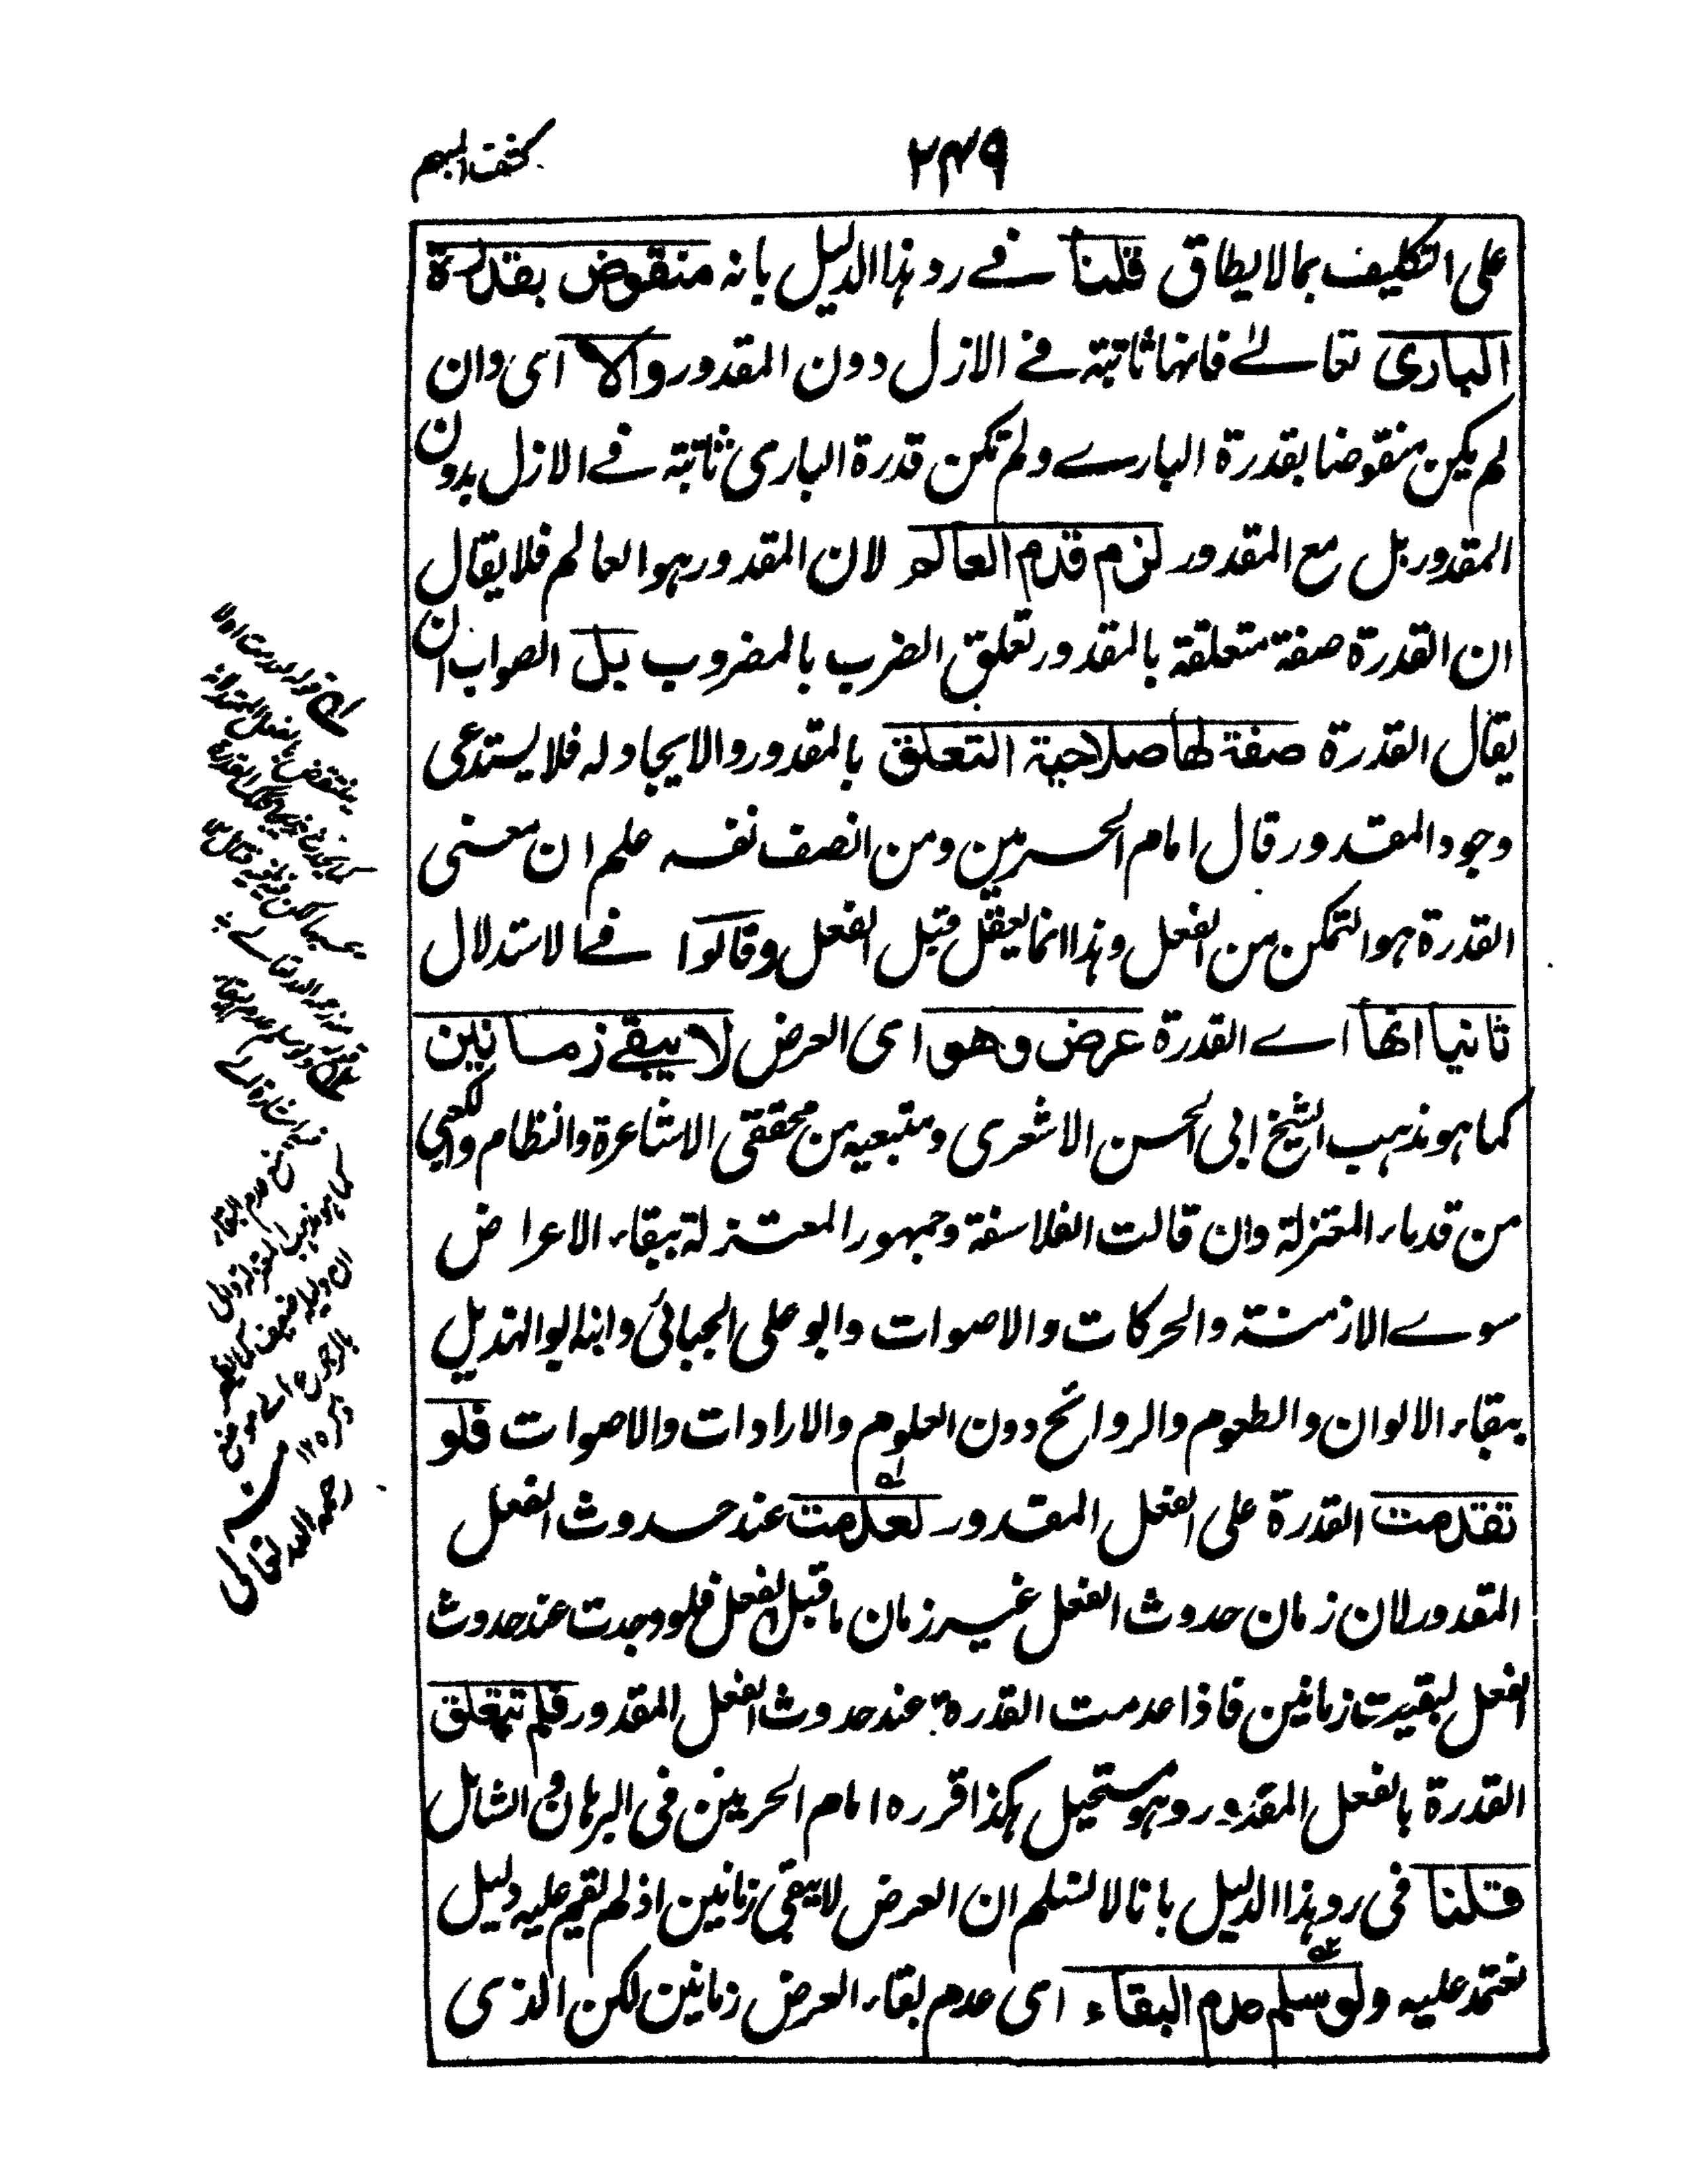 ٢٤٩
كشف المبهم
على التكليف بما لا يطاق قلنا في رد هذا الدليل بانه منقوض بقدرة
الباري تعالى فانها ثابتة في الازل دون المقدور والا اى وان
لم يكن منقوضا بقدرة الباري ولم تكن قدرة الباري ثابتة في الازل بدون
المقدور بل مع المقدور لزم قدم العالم لان المقدور هو العالم فلا يقال
ان القدرة صفة متعلقة بالمقدور تعلق الضرب بالمضروب بل الصواب ان
يقال القدرة صفة لها صلاحية التعلق بالمقدور والايجاد له فلا يستدعى
وجود المقدور قال امام الحرمين ومن انصف نفسه علم ان معنى
القدرة هو التمكن من الفعل وهذا انما يعقل قبل الفعل وقالوا في الاستدلال
ثانيا انها اى القدرة عرض وهو اى العرض لا يبقى زمانين
كما هو مذهب الشيخ ابى الحسن الاشعرى ومتبعيه من محققى الاشاعرة والنظام والكعبي
من قدماء المعتزلة وان قالت الفلاسفة وجمهور المعتزلة ببقاء الاعراض
سوى الازمنة والحركات والاصوات وابو على الجبائى وابنه ابو الهذيل
ببقاء الالوان والطعوم والروائح دون العلوم والارادات والاصوات فلو
تقدمت القدرة على الفعل المقدور لعدمت عند حدوث الفعل
المقدور لان زمان حدوث الفعل غير زمان ما قبل الفعل فلو وجدت عند حدوث
الفعل لبقيت زمانين فاذا عدمت القدرة عند حدوث الفعل المقدور فلم تتعلق
القدرة بالفعل المقدور وهو مستحيل هكذا قرره امام الحرمين فى البرهان و الشامل
قلنا فى رد هذا الدليل بانا لا نسلم ان العرض لا يبقى زمانين اذ لم يقم عليه دليل
نعتمد عليه ولو سلم عدم البقاء اى عدم بقاء العرض زمانين لكن الذى
كما هو مذهب المعتزلة
منه
رحمه الله تعالى